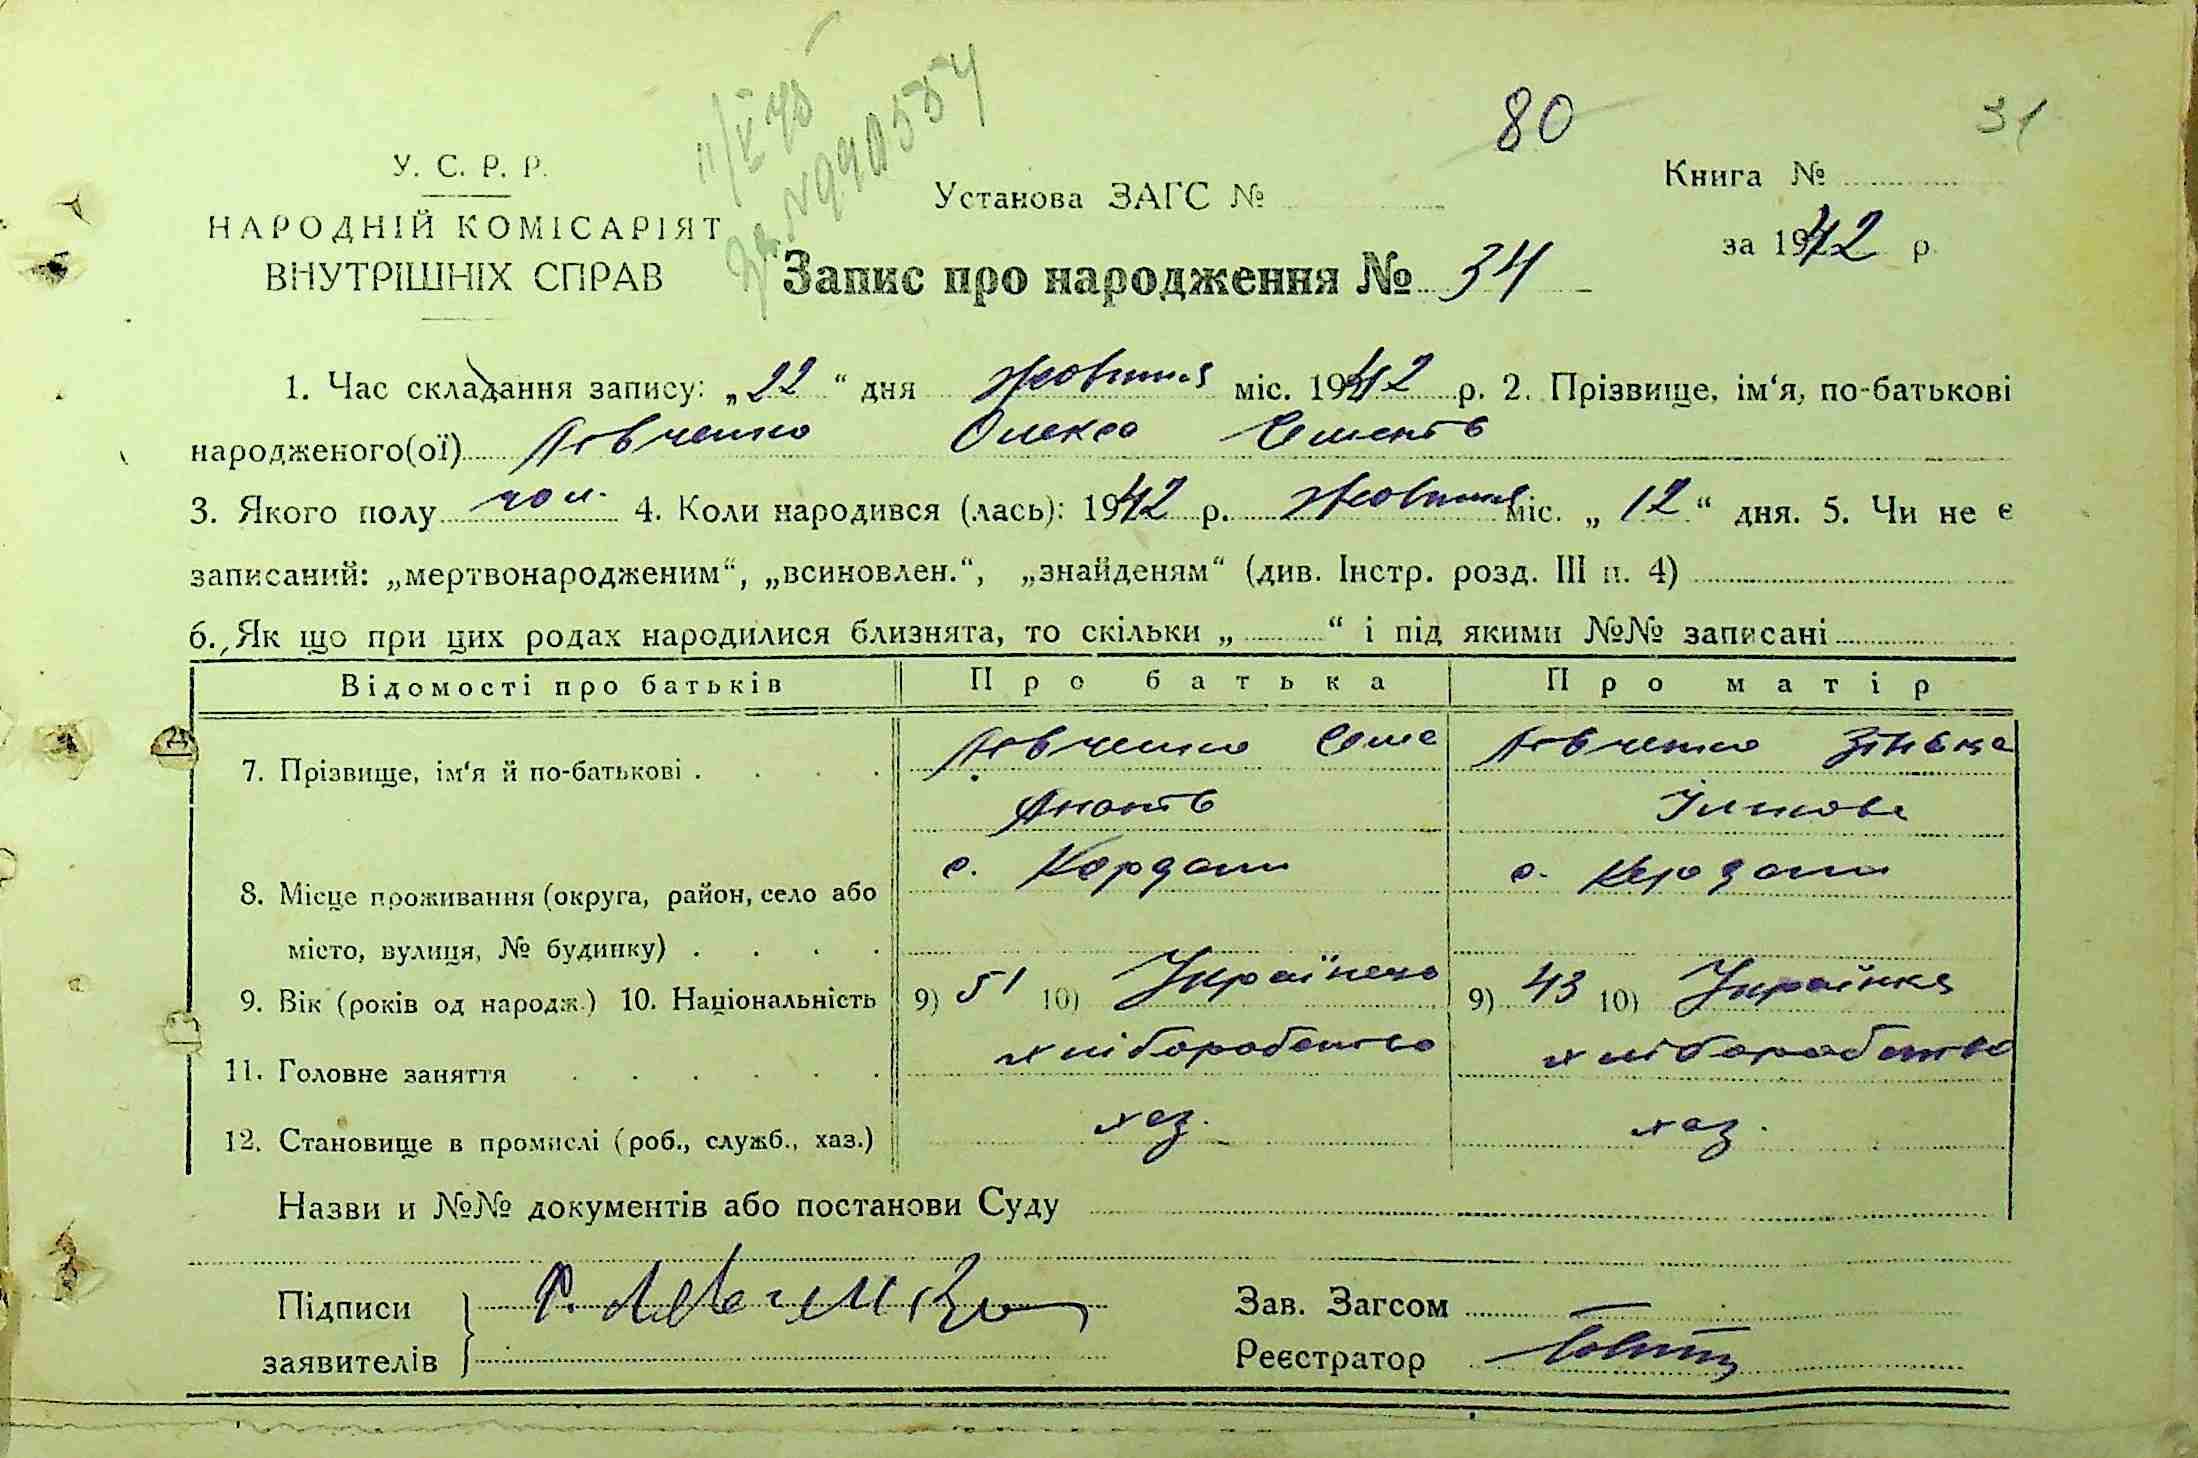 80
31
У. С. Р. Р.
НАРОДНІЙ КОМІСАРІЯТ
ВНУТРІШНІХ СПРАВ
Установа ЗАГС №
Книга №
за 1942 р.
Запис про народження № 34
1. Час складання запису: „22“ дня жовтня міс. 1942 р. 2. Прізвище, ім‘я, по-батькові
народженого(ої) Левченко Олекса Семенів
3. Якого полу чол. 4. Коли народився (лась): 1942 р. жовтня міс. „12“ дня. 5. Чи не є
записаний: „мертвонародженим“, „всиновлен.“, „знайденям“ (див. Інстр. розд. III п. 4)
6. Як що при цих родах народилися близнята, то скільки „ “ і під якими №№ записані
Відомості про батьків Про батька Про матір
7. Прізвище, ім‘я й по-батькові . . . . Левченко Левченко Зінька
с. Кордони с. Кордони
8. Місце проживання (округа, район, село або
місто, вулиця, № будинку) . . . .
9. Вік (років од народж.) 10. Національність 9) 51 10) Українець 9) 43 10) Українка
11. Головне заняття . . . . . . хліборобство хліборобство
12. Становище в промислі (роб., служб., хаз.) хаз. хаз.
Назви и №№ документів або постанови Суду
Підписи
заявителів
Зав. Загсом
Реєстратор